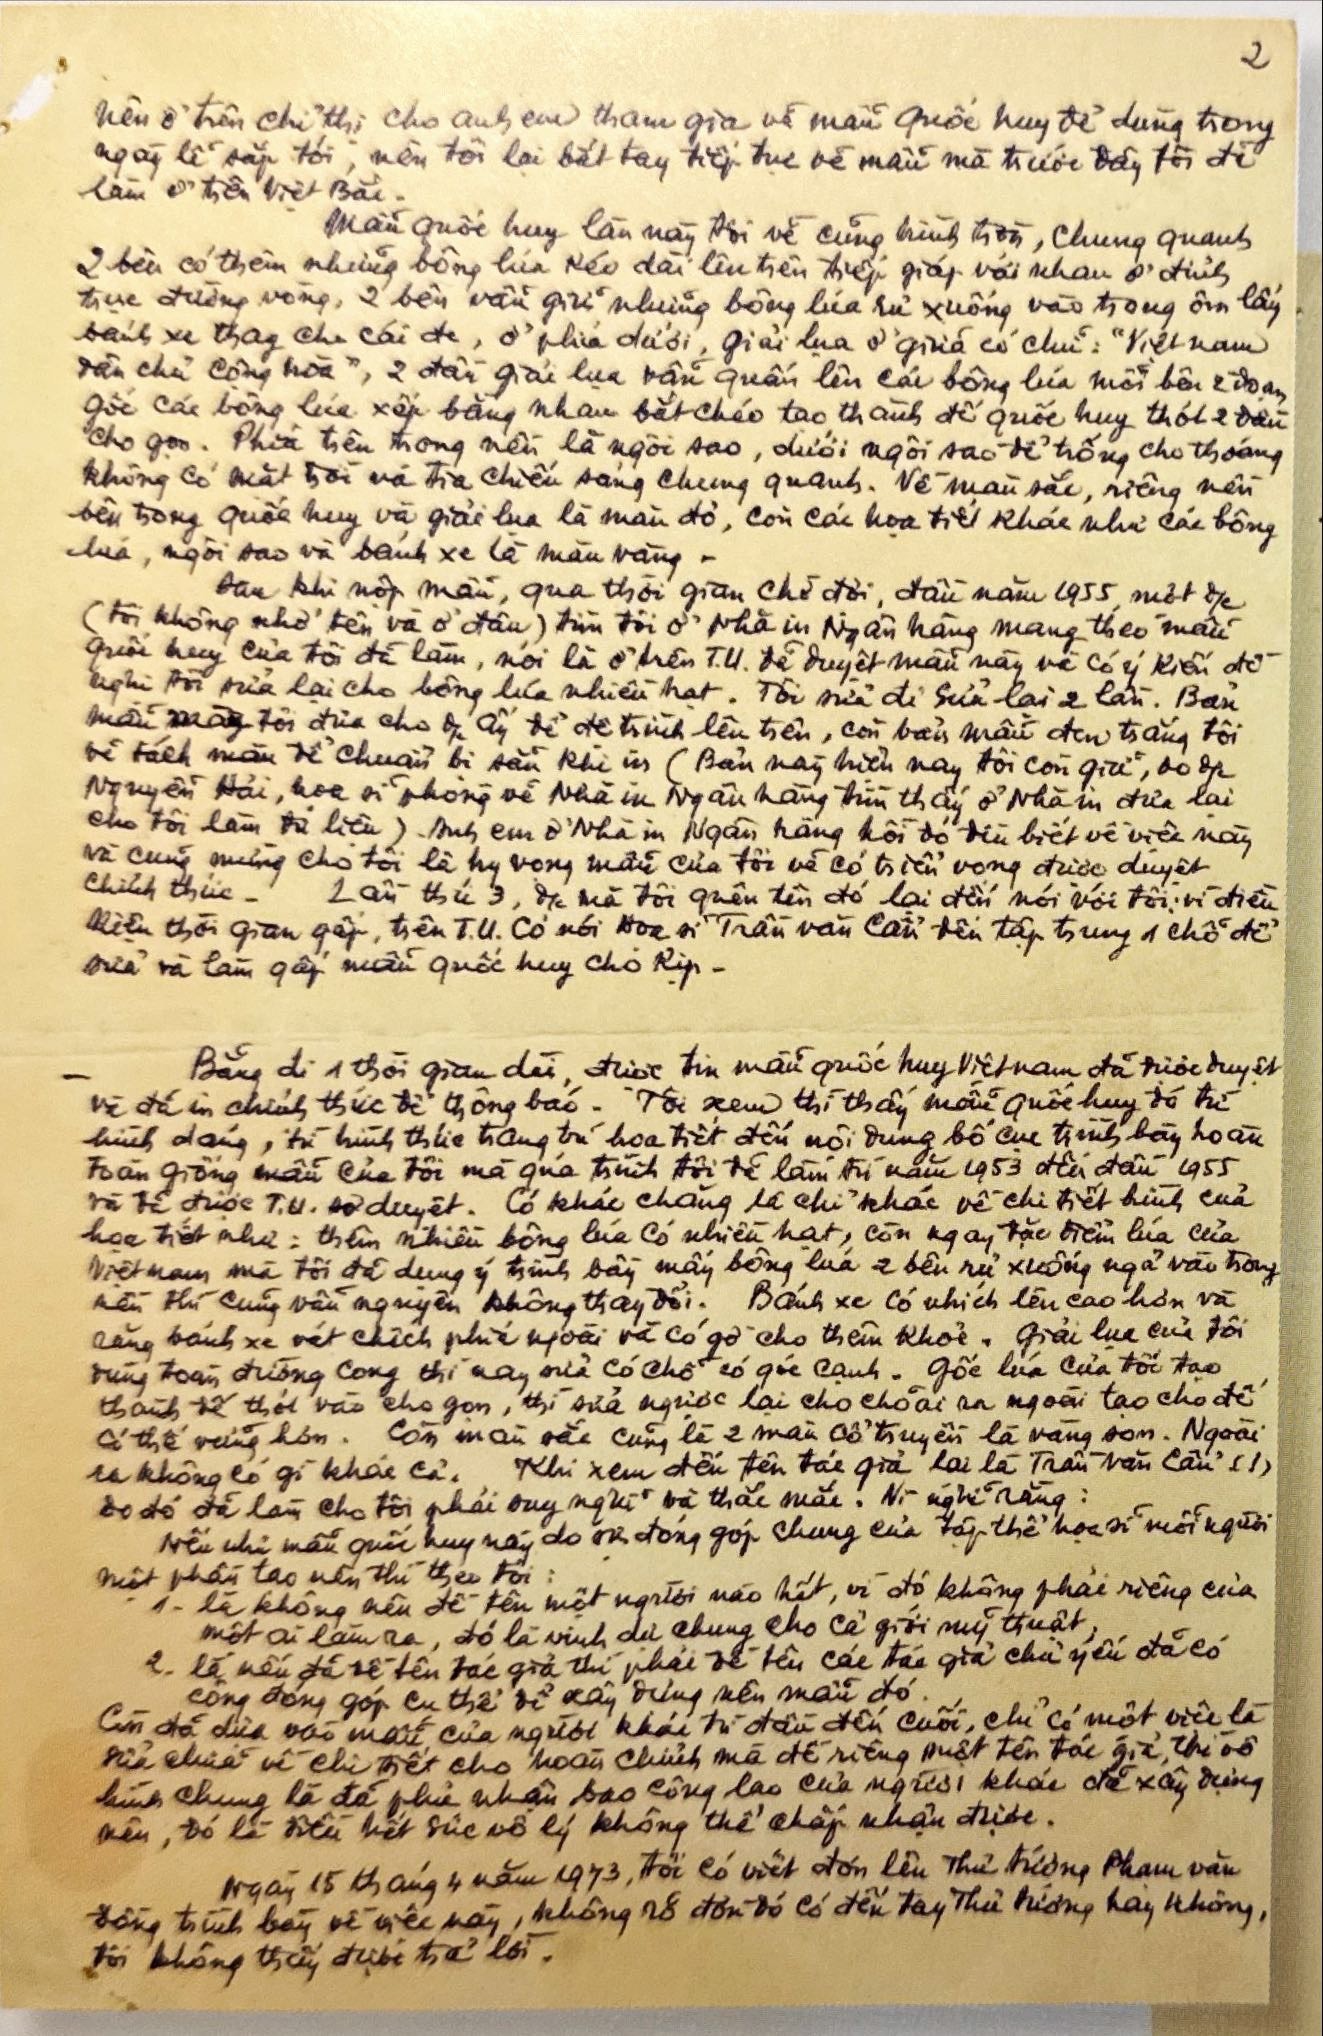 2
nên ở trên chỉ thị cho anh em tham gia vẽ mẫu Quốc huy để dùng trong
ngày lễ sắp tới, nên tôi lại bắt tay tiếp tục vẽ mẫu mà trước đây tôi đã
làm ở trên Việt Bắc.
Mẫu quốc huy lần này tôi vẽ cũng hình tròn, chung quanh
2 bên có thêm những bông lúa kéo dài lên trên tiếp giáp với nhau ở đỉnh
trục đường vòng, 2 bên vẫn giữ những bông lúa rủ xuống vào trong ôm lấy
bánh xe thay cho cái đe, ở phía dưới, giải lụa ở giữa có chữ: "Việt nam
dân chủ Cộng hòa", 2 đầu giải lụa vẫn quấn lên các bông lúa mỗi bên 2 đoạn,
gốc các bông lúa xếp bằng nhau bắt chéo tạo thành đế quốc huy thót 2 đầu
cho gọn. Phía trên trong nền là ngôi sao, dưới ngôi sao để trống cho thoáng
không có mặt trời và tia chiếu sáng chung quanh. Về màu sắc, riêng nền
bên trong quốc huy và giải lụa là màu đỏ, còn các họa tiết khác như các bông
lúa, ngôi sao và bánh xe là màu vàng –
Sau khi nộp mẫu, qua thời gian chờ đợi, đầu năm 1955, một đ/c
(tôi không nhớ tên và ở đâu) tìm tôi ở Nhà in Ngân hàng mang theo mẫu
quốc huy của tôi đã làm, nói là ở trên T.U. đã duyệt mẫu này và có ý kiến đề
nghị tôi sửa lại cho bông lúa nhiều hạt. Tôi sửa đi sửa lại 2 lần. Bản
mẫu màu tôi đưa cho đ/c ấy để đệ trình lên trên, còn bản mẫu đen trắng tôi
vẽ tách màu để chuẩn bị sẵn khi in (Bản này hiện nay tôi còn giữ, do đ/c
Nguyễn Hải, họa sĩ phòng vẽ Nhà in Ngân hàng tìm thấy ở Nhà in đưa lại
cho tôi làm tư liệu). Anh em ở Nhà in Ngân hàng hồi đó đều biết về việc này
và cũng mừng cho tôi là hy vọng mẫu của tôi vẽ có triển vọng được duyệt
chính thức – Lần thứ 3, đ/c mà tôi quên tên đó lại đến nói với tôi: vì điều
kiện thời gian gấp, trên T.U. Có nói Họa sĩ Trần văn Cẩn đến tập trung 1 chỗ để
sửa và làm gấp mẫu quốc huy cho kịp –
– Bẵng đi 1 thời gian dài, được tin mẫu quốc huy Việt nam đã được duyệt
và đã in chính thức để thông báo – Tôi xem thì thấy mẫu Quốc huy đó từ
hình dáng, từ hình thức trang trí họa tiết đến nội dung bố cục trình bày hoàn
toàn giống mẫu của tôi mà quá trình tôi đã làm từ năm 1953 đến đầu 1955
và đã được T.U. sơ duyệt. Có khác chăng là chỉ khác về chi tiết hình của
họa tiết như: thêm nhiều bông lúa có nhiều hạt, còn ngay đặc điểm lúa của
Việt nam mà tôi đã dụng ý trình bầy mấy bông lúa 2 bên rủ xuống ngả vào trong
nền thì cũng vẫn nguyên không thay đổi. Bánh xe có nhích lên cao hơn và
răng bánh xe vát chếch phía ngoài và có gờ cho thêm khỏe. Giải lụa của tôi
dùng toàn đường cong thì nay sửa có chỗ có góc cạnh. Gốc lúa của tôi tạo
thành đế thót vào cho gọn, thì sửa ngược lại cho choãi ra ngoài tạo cho đế
có thế vững hơn. Còn màu sắc cũng là 2 màu cổ truyền là vàng son. Ngoài
ra không có gì khác cả. Khi xem đến tên tác giả lại là Trần Văn Cẩn (!)
Do đó đã làm cho tôi phải suy nghĩ và thắc mắc. Vì nghĩ rằng:
Nếu như mẫu quốc huy này do sự đóng góp chung của tập thể họa sĩ mỗi người
một phần tạo nên thì theo tôi:
1- là không nên đề tên một người nào hết, vì đó không phải riêng của
một ai làm ra, đó là vinh dự chung cho cả giới mỹ thuật.
2- là nếu đã đề tên tác giả thì phải đề tên các tác giả chủ yếu đã có
công đóng góp cụ thể để xây dựng nên mẫu đó.
Còn đã dựa vào mẫu của người khác từ đầu đến cuối, chỉ có một việc là
sửa chữa về chi tiết cho hoàn chỉnh mà đề riêng một tên tác giả, thì vô
hình chung là đã phủ nhận bao công lao của người khác đã xây dựng
nên, đó là điều hết sức vô lý không thể chấp nhận được.
Ngày 15 tháng 4 năm 1973, tôi có viết đơn lên Thủ tướng Phạm văn
Đồng trình bày về việc này, không rõ đơn đó có đến tay Thủ tướng hay không,
tôi không thấy được trả lời.